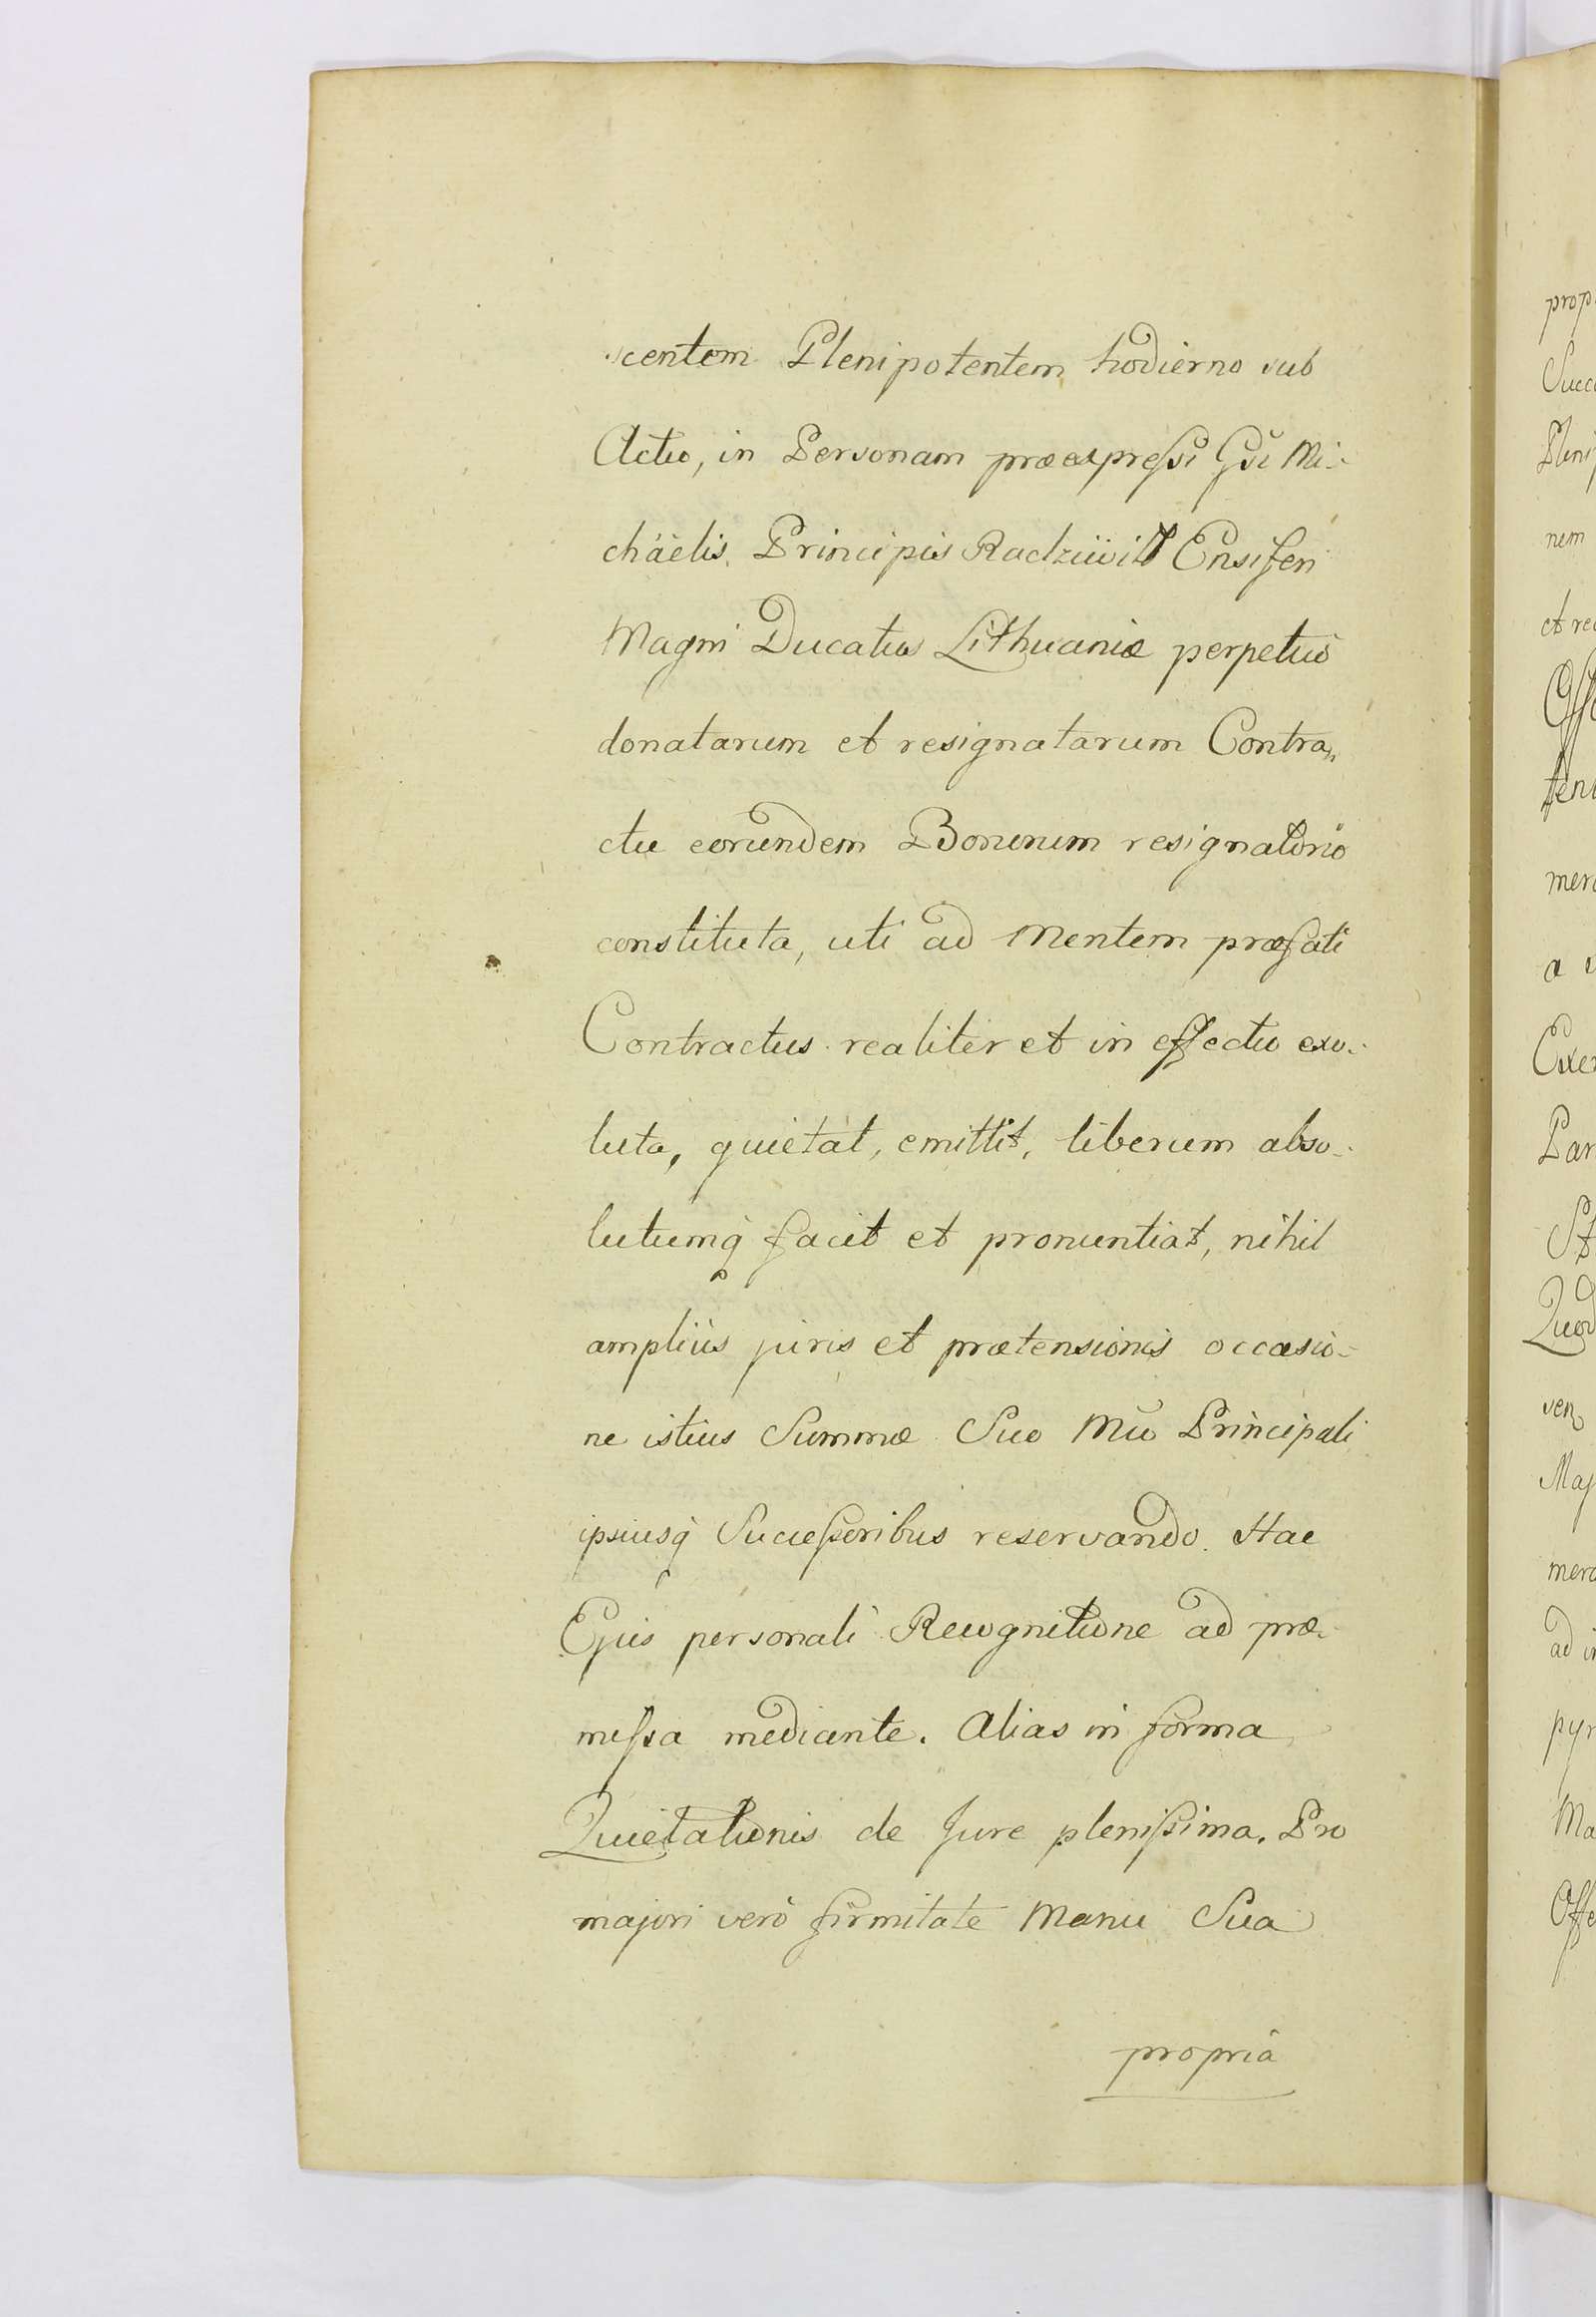 scentem Plenipotentem hodierno sub
Actu, in Personam præexpressi Gsi Mi-
chäelis Principis Radziwiłł Ensiferi
Magni Ducatus Lithuaniæ perpetuò
donatarum et resignatarum Contra„
ctu eorundem Bonorum resignatorio
constituta, uti ad Mentem præfati
Contractus realiter et in effectu exo-
luta, quietat, emittit, liberum abso-
lutumq facit et pronuntiat, nihil
ampliùs juris et prætensionis occasio-
ne istius Summæ Suo Mo Principali
ipsiusq Successoribus reservando. Hac
Ejus personali Recognitione ad præ-
missa mediante. Alias in forma
Quietationis de Jure plenissima. Pro
majori verò firmitate Manu Sua
propria
prop
Succ
Pleni
nem
et re
mer
a
Exe
Par
St
Quod
ven
Maj
merc
ad i
pyr
Ma
Offe